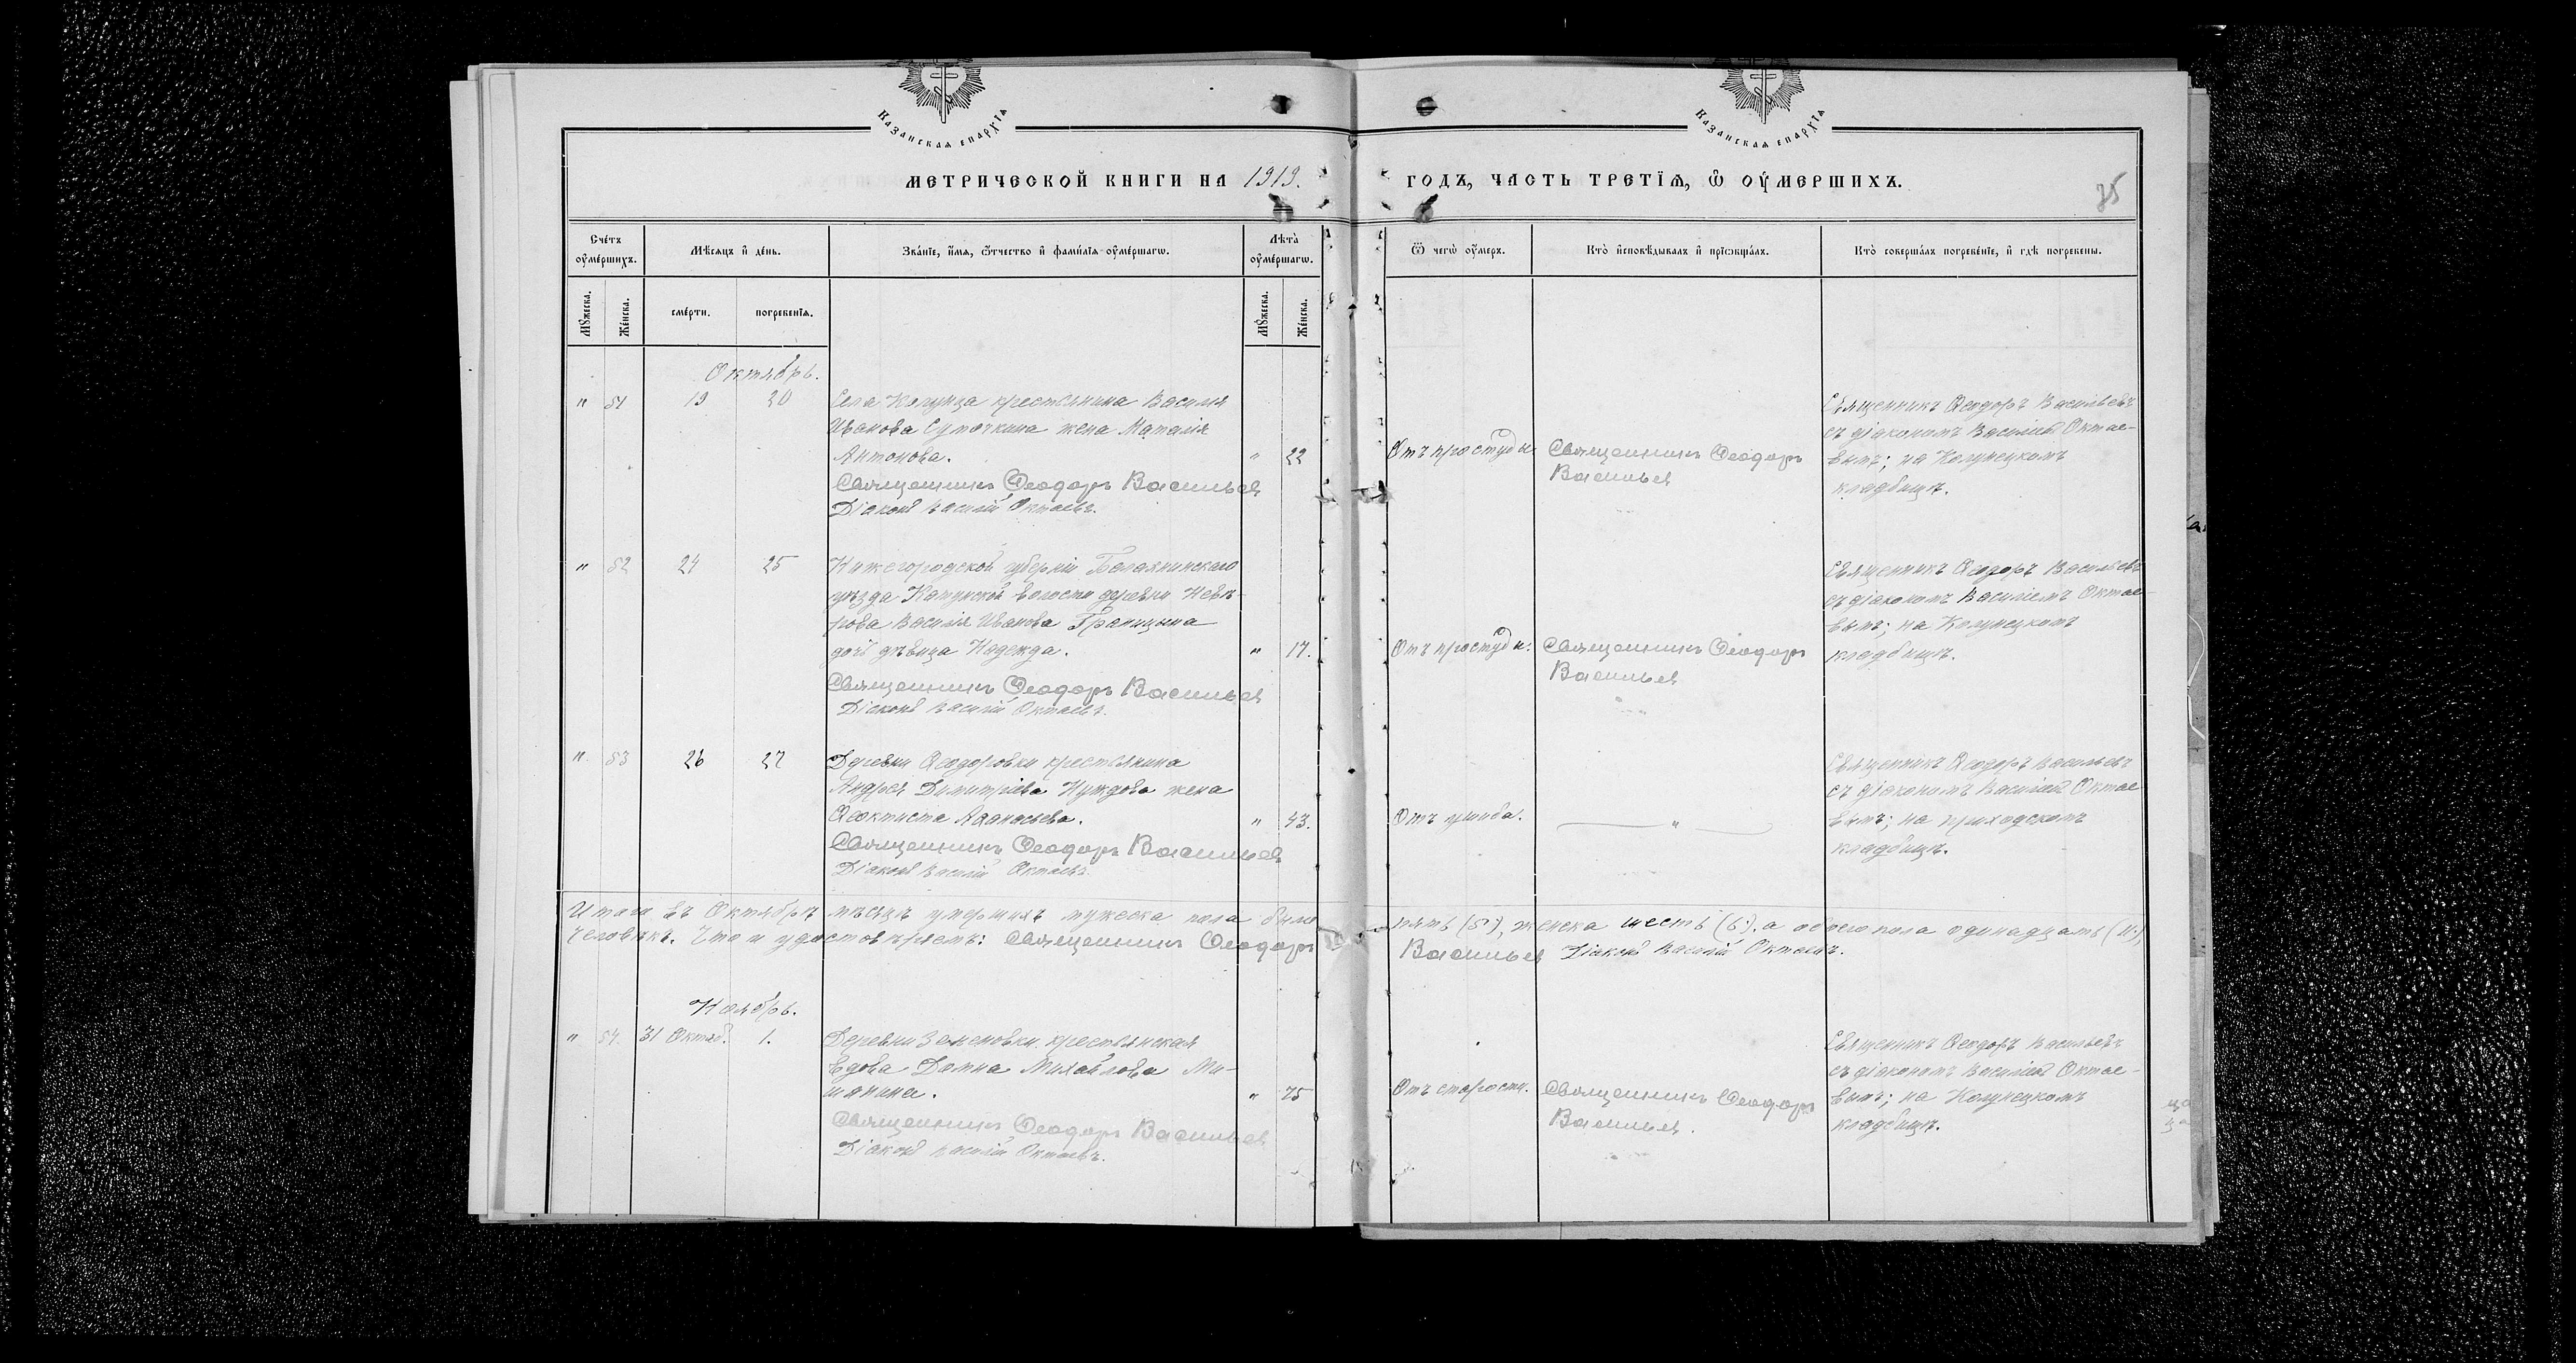 Казанская епархїя
Казанская епархїя
МЕТРИЧЕСКОЙ КНИГИ НА 1919.
ГОДЪ, ЧАСТЬ ТРЕТЇЯ, Ѿ ОУМЕРШИХЪ.
Счетъ оумершихъ.
Мѣсяцъ и день.
Званїе, имя, отчество и фамилїя оумершагω.
Лѣта оумершагω.
Ѿ чегω оумеръ.
Кто исповѣдывалъ и прїобщалъ.
Кто совершалъ погребенїе, и гдѣ погребены.
Мужеска.
Женска.
смерти.
погребенїя.
Мужеска.
Женска.
Октябрь.
" 51 19 20
Села Колунца крестьянина Василія
Иванова Суточкина жена Наталія
Антонова. " 22
Священникъ Ѳеодоръ Васильев
Діаконъ Василій Октаевъ.
Отъ простуды.
Священникъ Ѳеодоръ
Васильев
Священникъ Ѳеодоръ Васильевъ
съ діакономъ Василіемъ Октае-
вымъ; на Колунецкомъ
кладбищѣ.
" 52 24 25
Нижегородской губерніи Балахнинскаго
уѣзда волости деревни Невѣ-
рова Василія Иванова
дочь дѣвица Надежда. " 17.
Священникъ Ѳеодоръ Васильев
Діаконъ Василій Октаевъ.
Отъ простуды.
Священникъ Ѳеодоръ
Васильев
Священникъ Ѳеодоръ Васильевъ
съ діакономъ Василіемъ Октае-
вымъ; на Колунецкомъ
кладбищѣ.
" 53 26 27
Деревни Ѳеодоровки крестьянина
Андрея Димитріева Нуждова жена
Ѳеоктиста Аѳанасьева. " 43.
Священникъ Ѳеодоръ Васильев
Діаконъ Василій Октаевъ.
Отъ ушиба.
"
Священникъ Ѳеодоръ Васильевъ
съ діакономъ Василіемъ Октае-
вымъ; на приходскомъ
кладбищѣ.
Итого въ Октябрѣ мѣсяцѣ умершихъ мужеска пола было пять (5), женска шесть (6), а обоего пола одинадцать (11),
человѣкъ. Что и удостовѣряемъ: Священникъ Ѳеодоръ Васильев Діаконъ Василій Октаевъ.
Ноябрь.
" 54. 31 Октяб. 1.
Деревни Земеновки крестьянская
вдова Домна Михайлова Ми-
шанина. " 75
Священникъ Ѳеодоръ Васильев
Діаконъ Василій Октаевъ.
Отъ старости.
Священникъ Ѳеодоръ
Васильев.
Священникъ Ѳеодоръ Васильевъ
съ діакономъ Василіемъ Октае-
вымъ; на Колунецкомъ
кладбищѣ.